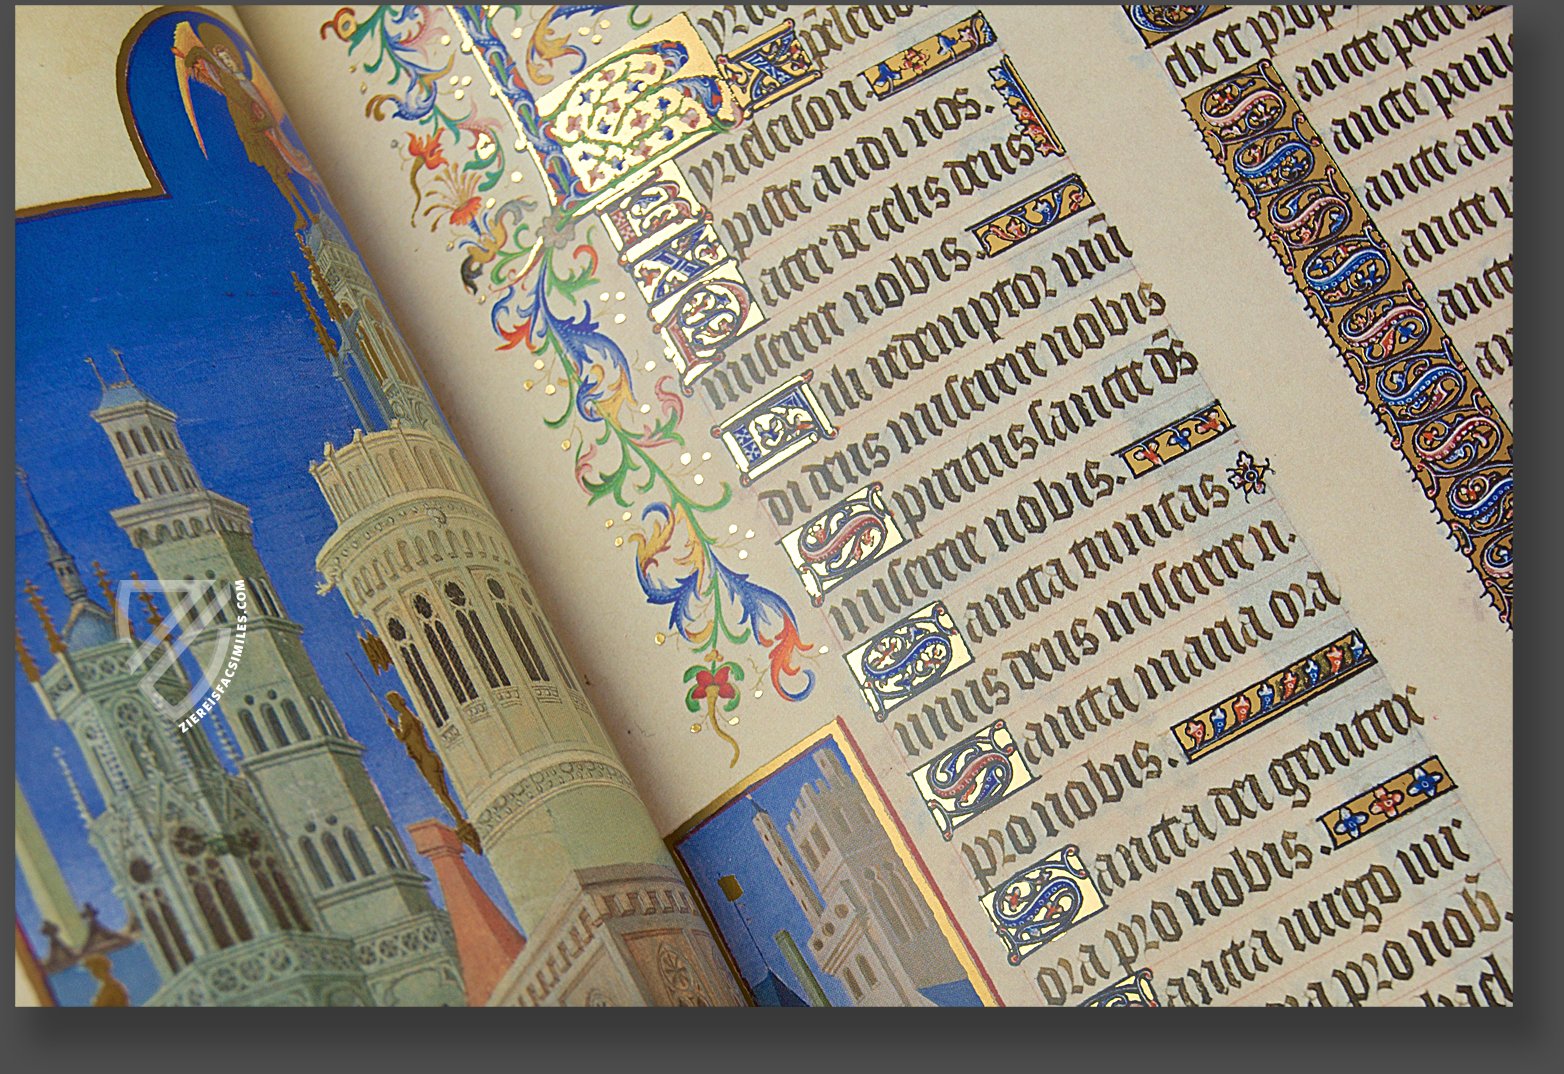 Kyrieleison.
Xpiste audi nos.
Pater de celis deus
miserere nobis.
Fili redemptor mūdi
di deus miserere nobis
Spiritus sancte ds̄
miserere nobis.
Sancta trinitas
unus deus miserere n.
Sancta maria ora
pro nobis.
Sancta dei genitrix
ora pro nobis.
Sancta virgo vir
ora pro nob̄.
Sancte petre
Sancte paul
Sancte and
Sancte
Sancte
ZIEREISFACSIMILES.COM